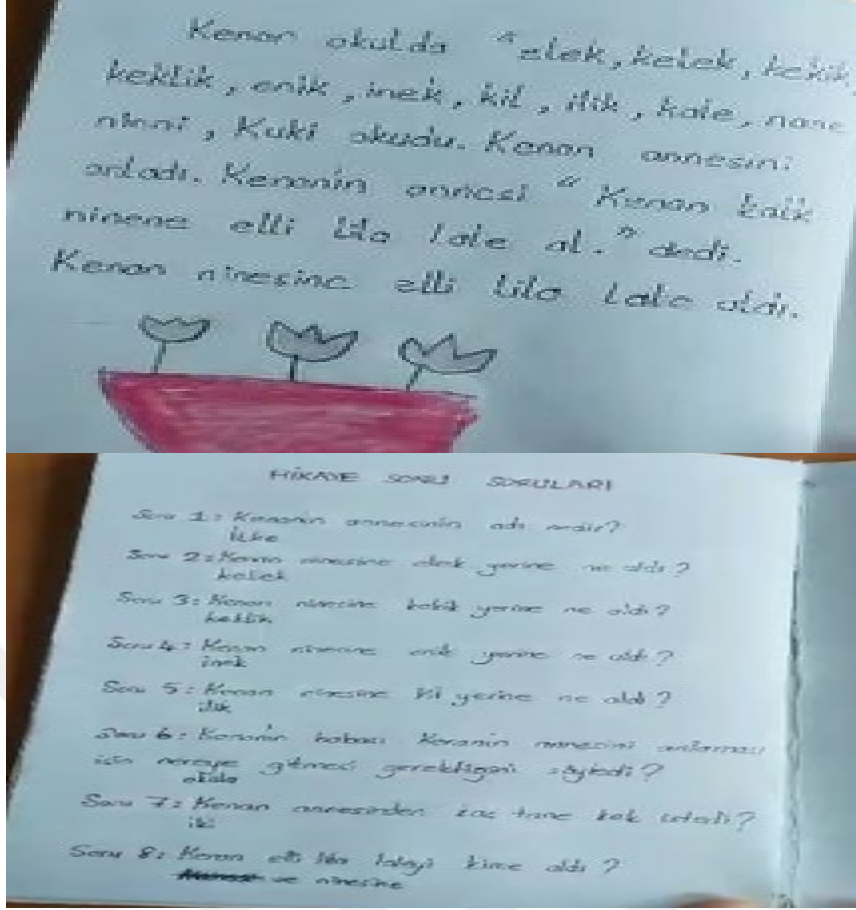 Kenan okulda "elek, kelek, kekik,
keklik, enik, inek, kil, ilik, kale, nane
ninni, Kuki okudu. Kenan annesini
anladı. Kenanin annesi " Kenan kalk
ninene elli lila lale al." dedi.
Kenan ninesine elli lila lale aldı.
HİKAYE SONU SORULARI
Soru 1: Kenanin annesinin adı nedir?
İlke
Soru 2: Kenan ninesine elek yerine ne aldı?
kelek
Soru 3: Kenan ninesine kekik yerine ne aldı?
keklik
Soru 4: Kenan ninesine enik yerine ne aldı?
inek
Soru 5: Kenan ninesine kil yerine ne aldı?
ilik
Soru 6: Kenanin babası Kenanin annesini anlaması
için nereye gitmesi gerektiğini söyledi?
okula
Soru 7: Kenan annesinden kaç tane kek istedi?
iki
Soru 8: Kenan elli lila laleyi kime aldı?
ve ninesine